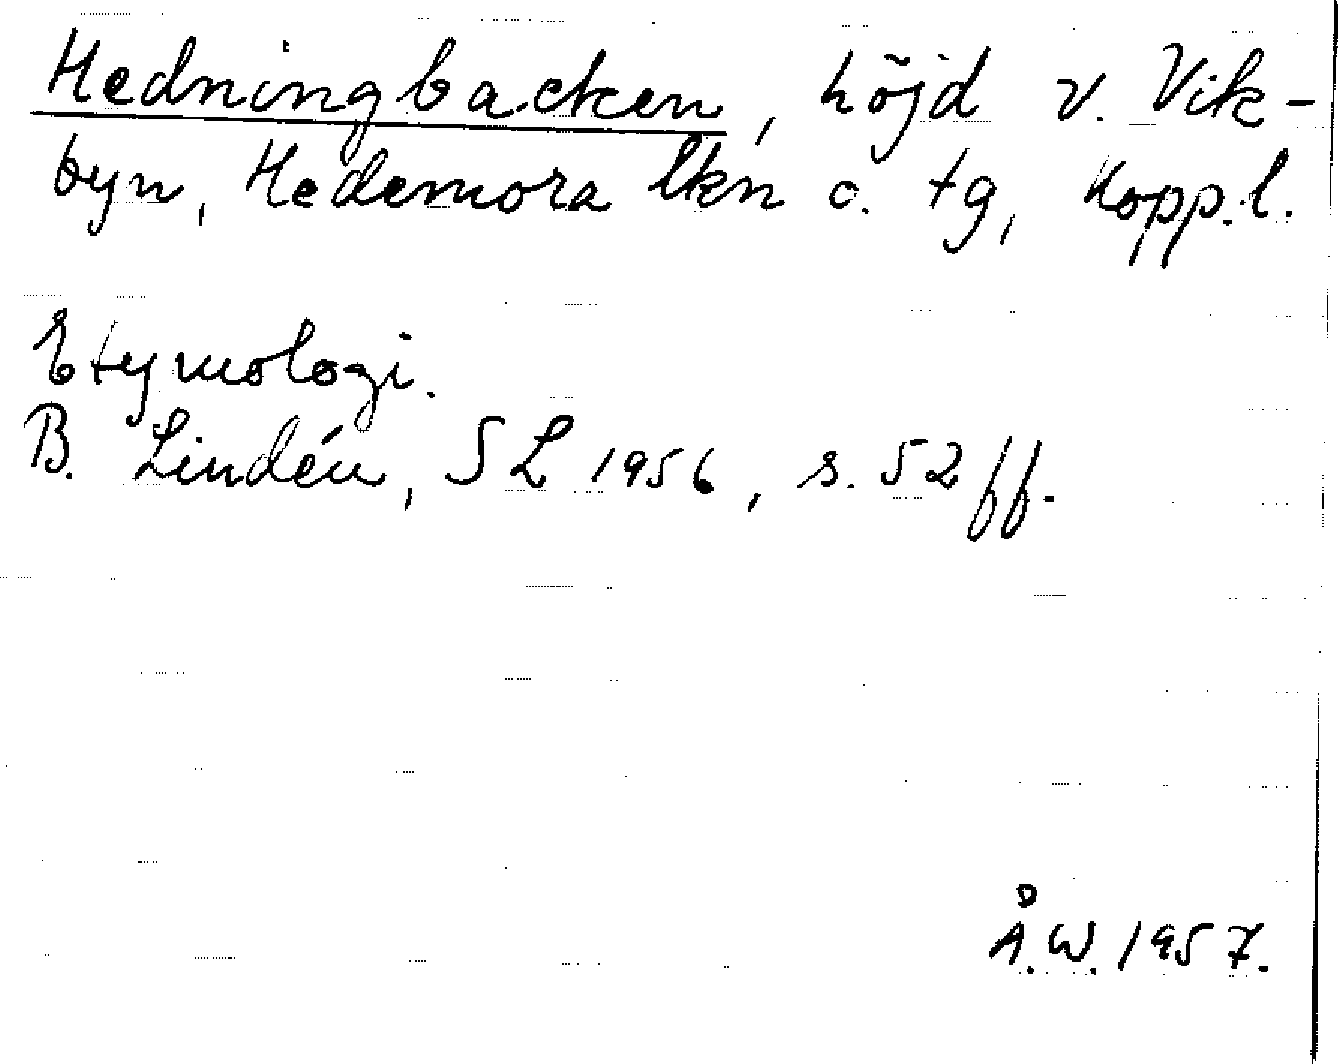 Hedningbacken, höjd v. Vik-
byn, Hedemora lkn o. tg, Kopp.l.
Etymologi.
B. Lindén, SL 1956, s. 52 ff.
Å.W. 1957.